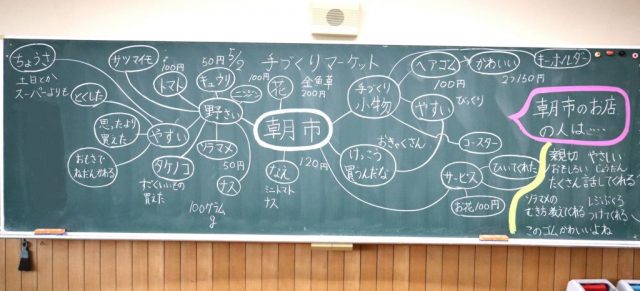 手づくりマーケット
朝市
ちょうさ
土日とか
スーパーよりも
とくした
思ったより
買えた
おもさで
ねだんがかわる
やすい
サツマイモ
100円
トマト
50円
5/2
キュウリ
ニンジン
野さい
タケノコ
すごくいいもの
買えた
ソラマメ
50円
ナス
100グラム
g
100円
花
金魚草
200円
なえ
120円
ミニトマト
ナス
手づくり
小物
ヘアゴム
100円
かわいい
2つ150円
キーホルダー
やすい
びっくり
コースター
おきゃくさん
けっこう
買うんだな
サービス
ひいてくれた
お花100円
朝市のお店
の人は…
親切 やさしい
おもしろい じょうだん
たくさん話してくれる
ソラマメの
むき方教えてくれる
レジぶくろ
つけてくれる
このゴムかわいいよね